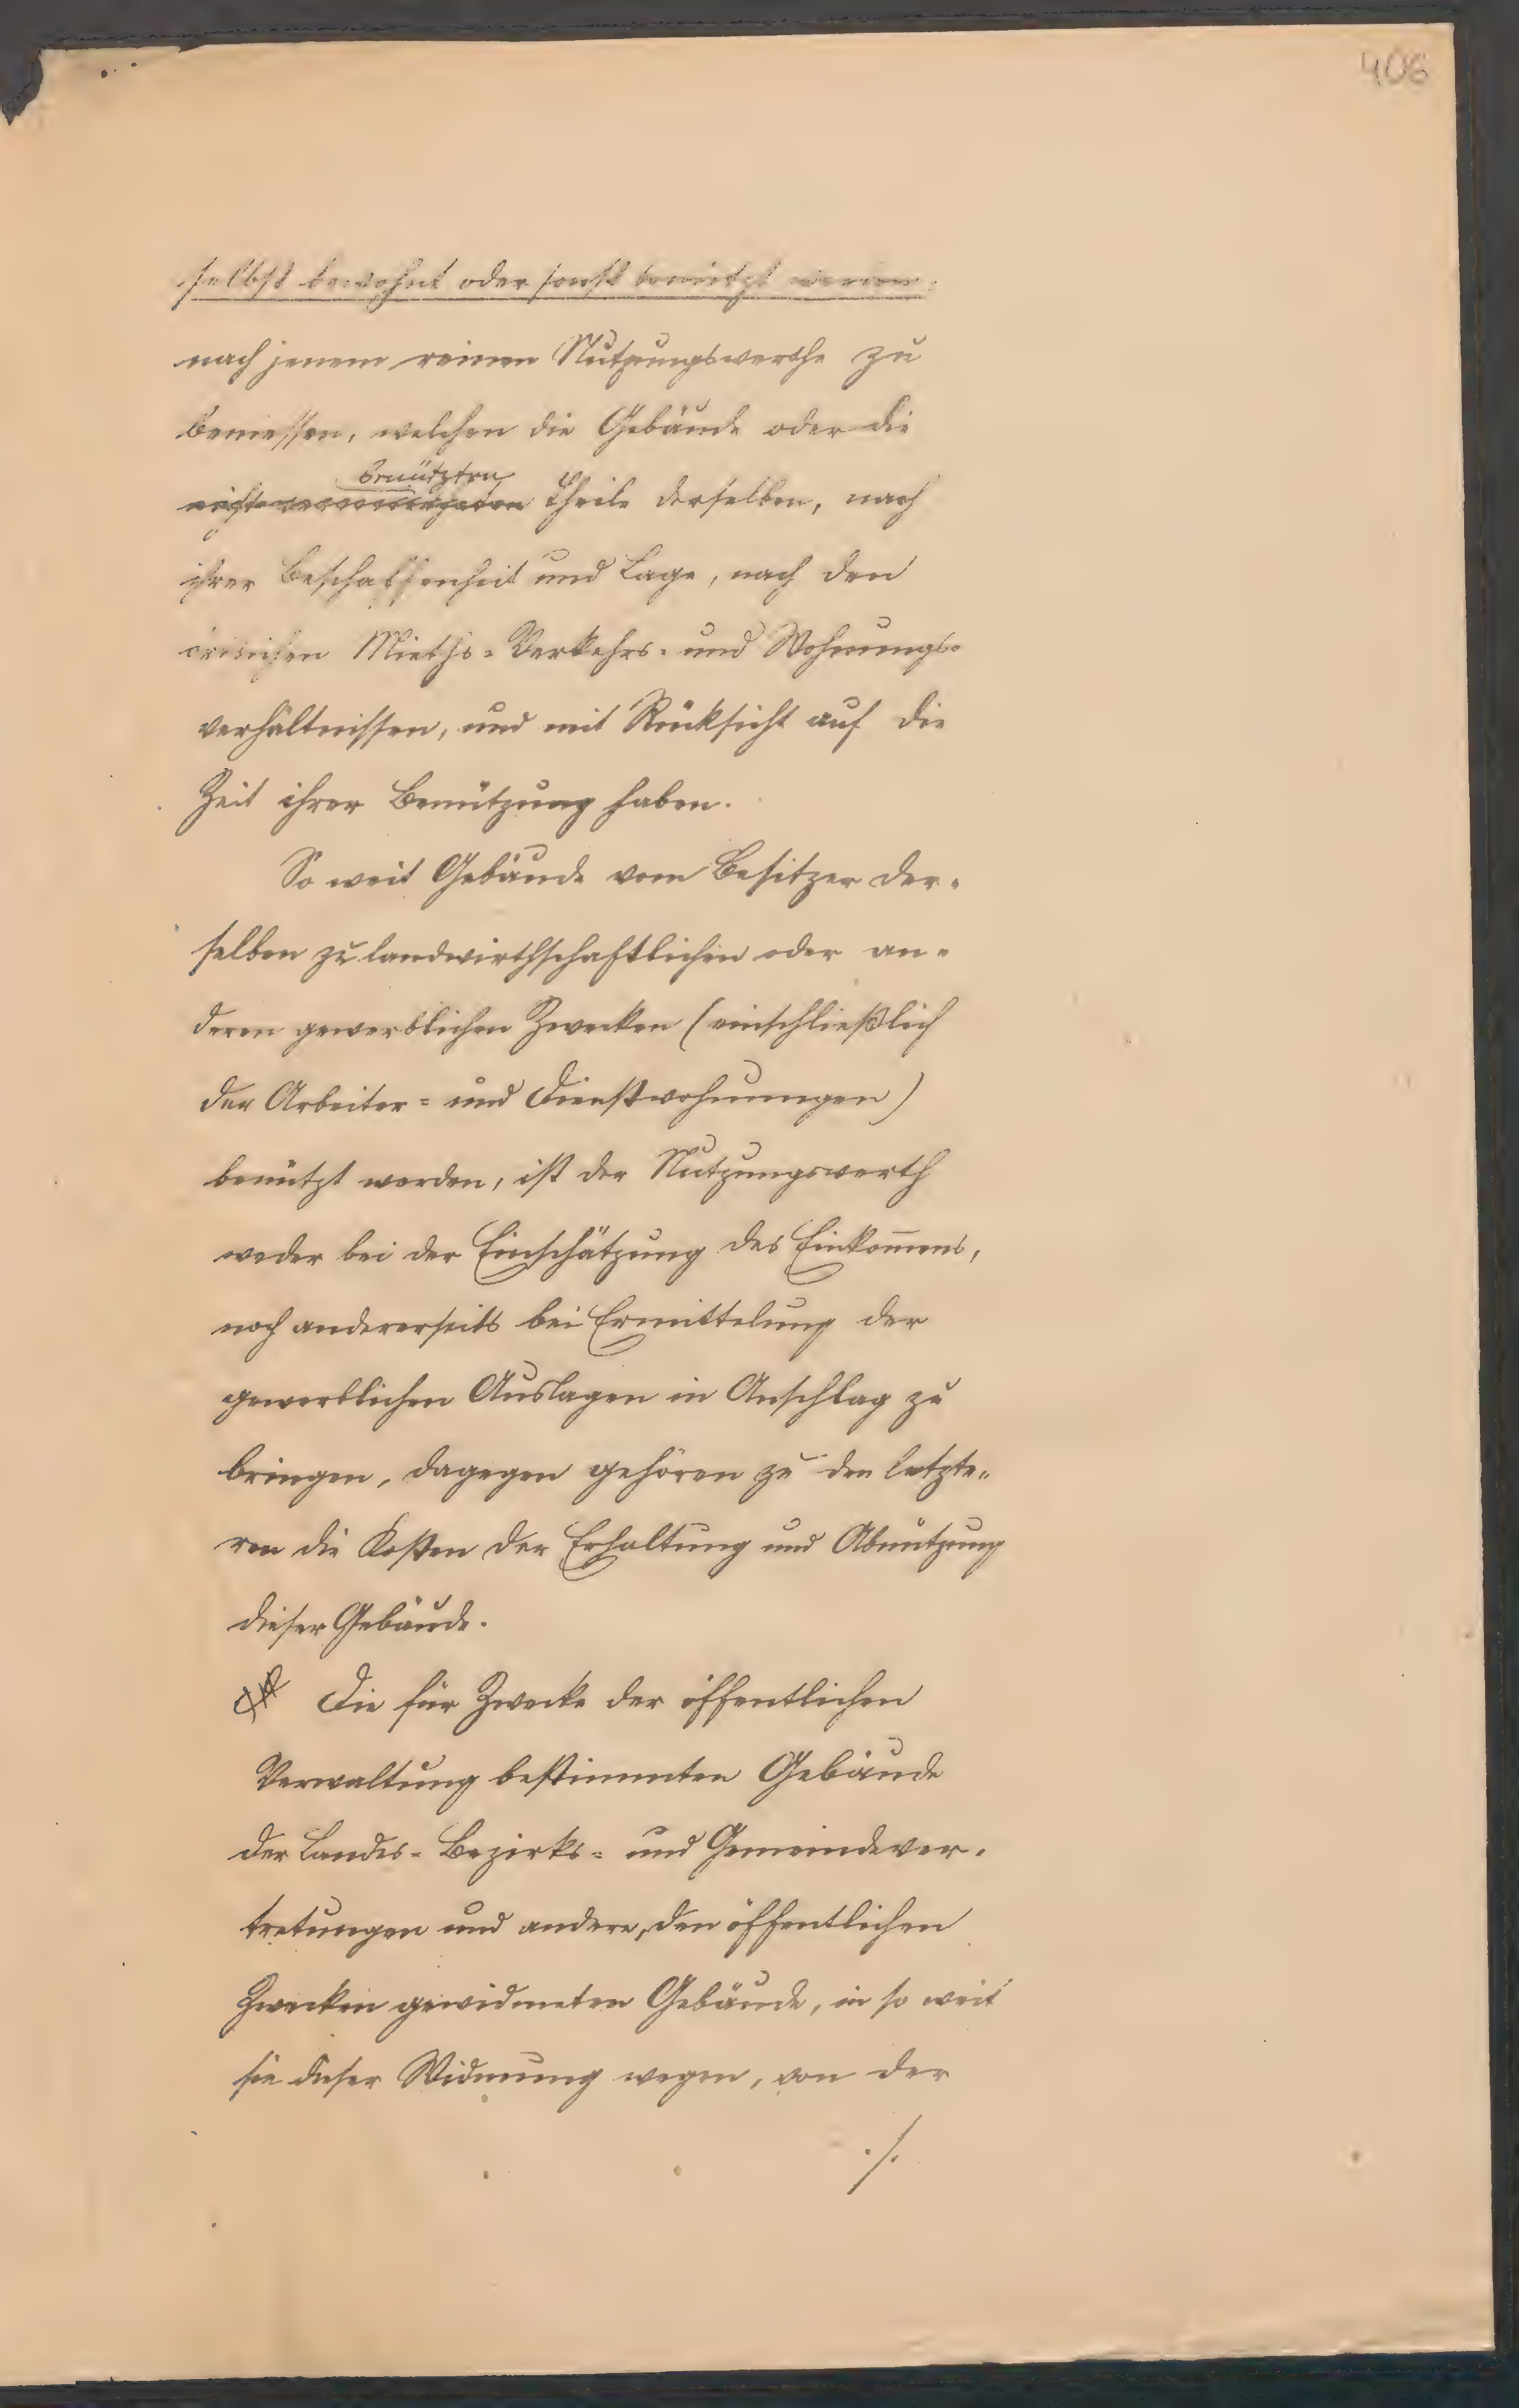 406
selbst bewohnt oder sonst benützt werden,
nach jenem reinen Nutzungswerthe zu
bemessen, welchen die Gebäude oder die
benützten
nicht vermietheten Theile derselben, nach
ihrer Beschaffenheit und Lage, nach den
örtlichen Mieths- Verkehrs- und Wohnungs-
verhältnissen, und mit Rüksicht auf die
Zeit ihrer Benützung haben.
So weit Gebäude vom Besitzer der-
selben zu landwirthschaftlichen oder an-
deren gewerblichen Zwecken (einschließlich
der Arbeiter- und Dienstwohnungen)
benützt werden, ist der Nutzungswerth
weder bei der Einschätzung des Einkom̄ens,
noch andererseits bei Ermittelung der
gewerblichen Auslagen in Anschlag zu
bringen, dagegen gehören zu den letzte-
ren die Kosten der Erhaltung und Abnützung
dieser Gebäude.
Die für Zwecke der öffentlichen
Verwaltung bestimmten Gebäude
der Landes- Bezirks- und Gemeindever-
tretungen und andere, den öffentlichen
Zwecken gewidmeten Gebäude, in so weit
sie dieser Widmung wegen, von der
./.